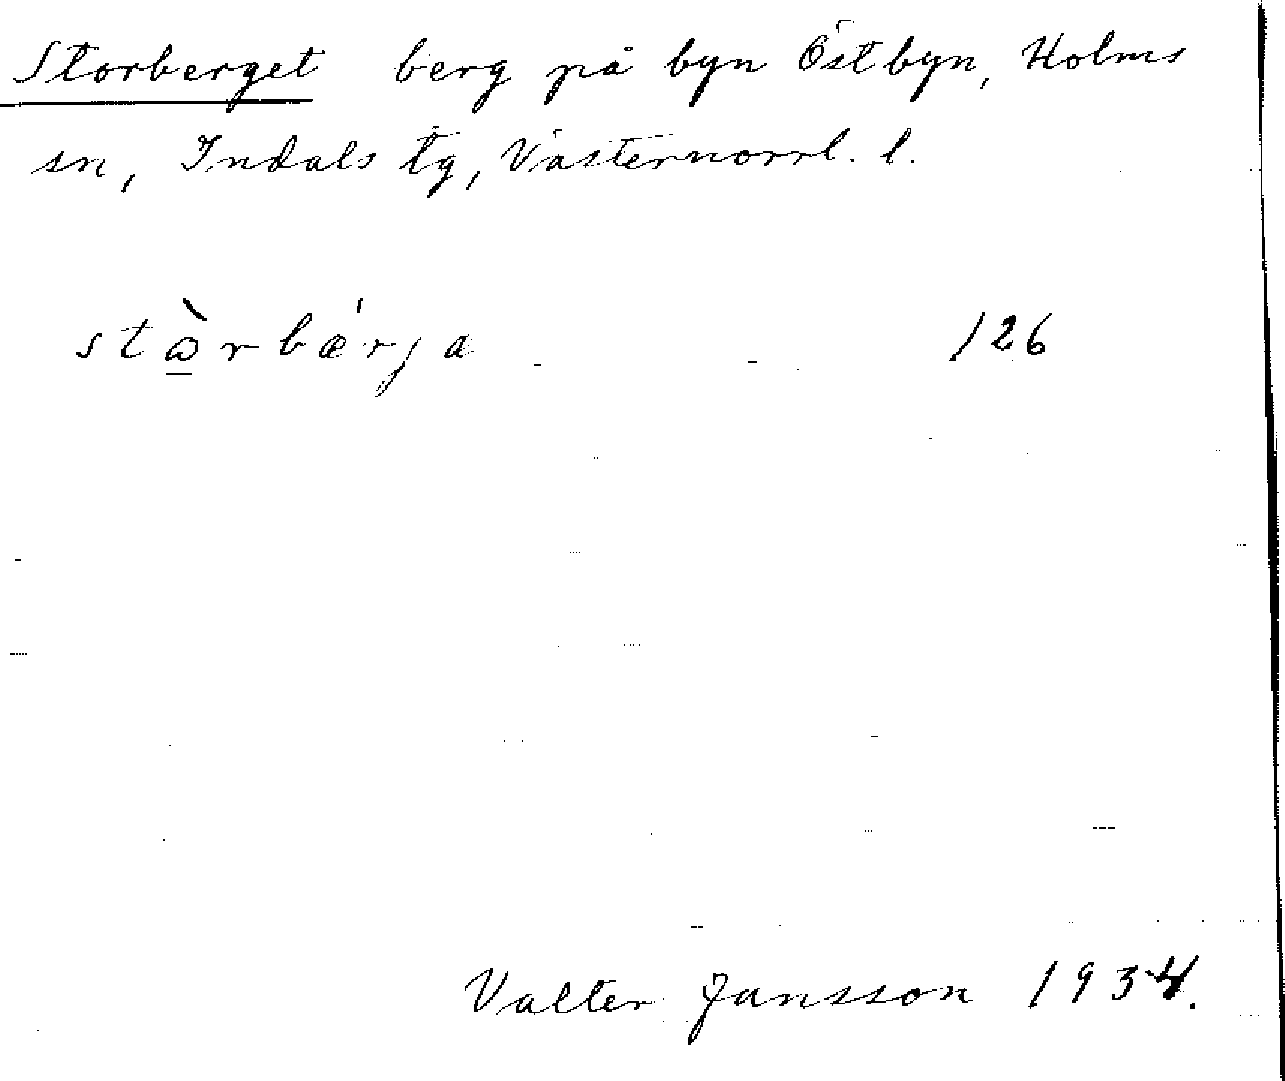 Storberget berg på byn Östbyn, Holms
sn, Indals tg, Västernorrl. l.
stὼ̠rbǽrja 126
Valter Jansson 1934.